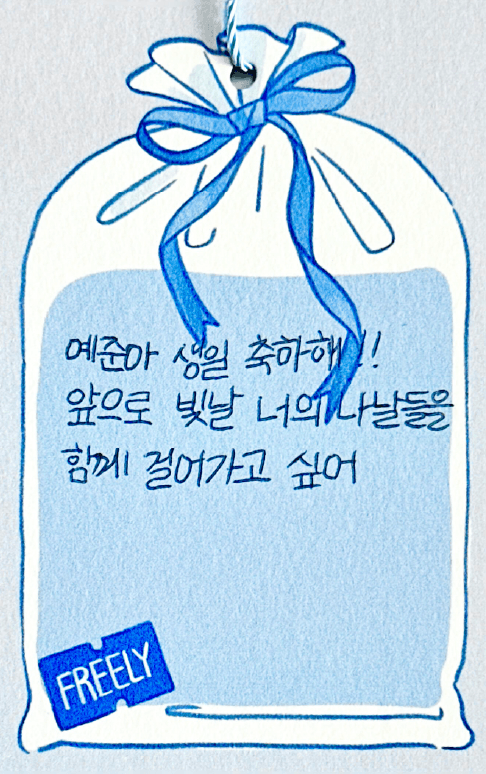 예준아 생일 축하해!!
앞으로 빛날 너의 나날들을
함께 걸어가고 싶어
FREELY